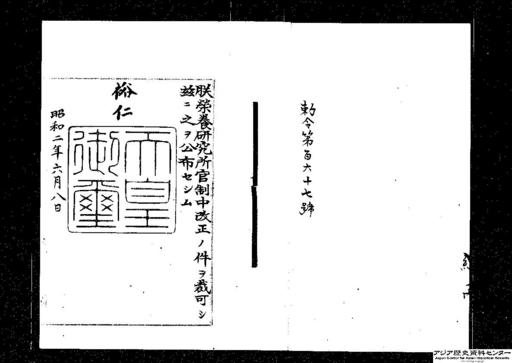 勅令第百六十七號
朕榮養研究所官制中改正ノ件ヲ裁可シ
茲ニ之ヲ公布セシム
裕仁
天皇御璽
昭和二年六月八日
アジア歴史資料センター
Japan Center for Asian Historical Records